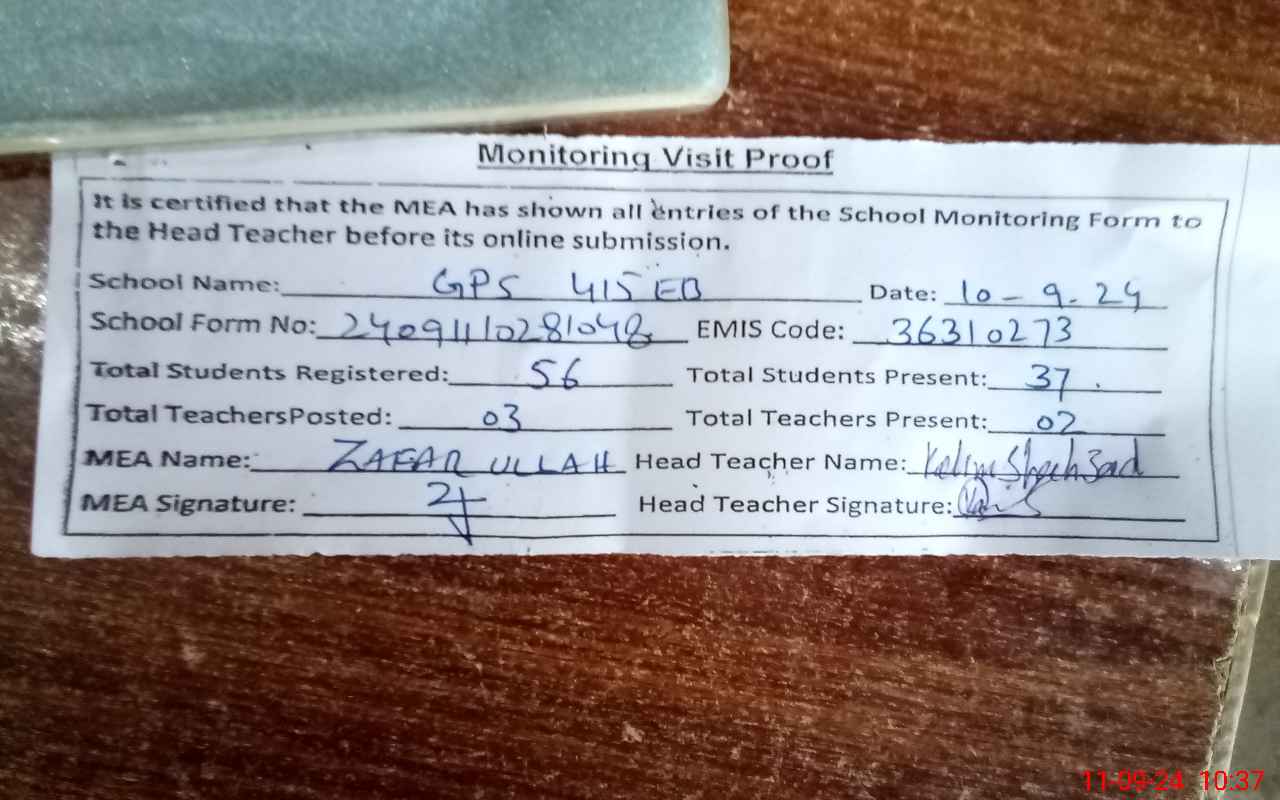 Monitoring Visit Proof
It is certified that the MEA has shown all entries of the School Monitoring Form to
the Head Teacher before its online submission.
School Name: GPS 415 EB Date: 10-9-24
School Form No: 24091110281048 EMIS Code: 36310273
Total Students Registered: 56 Total Students Present: 37.
Total TeachersPosted: 03 Total Teachers Present: 02
MEA Name: ZAFAR ULLAH Head Teacher Name:
MEA Signature: Head Teacher Signature:
11-09-24 10:37